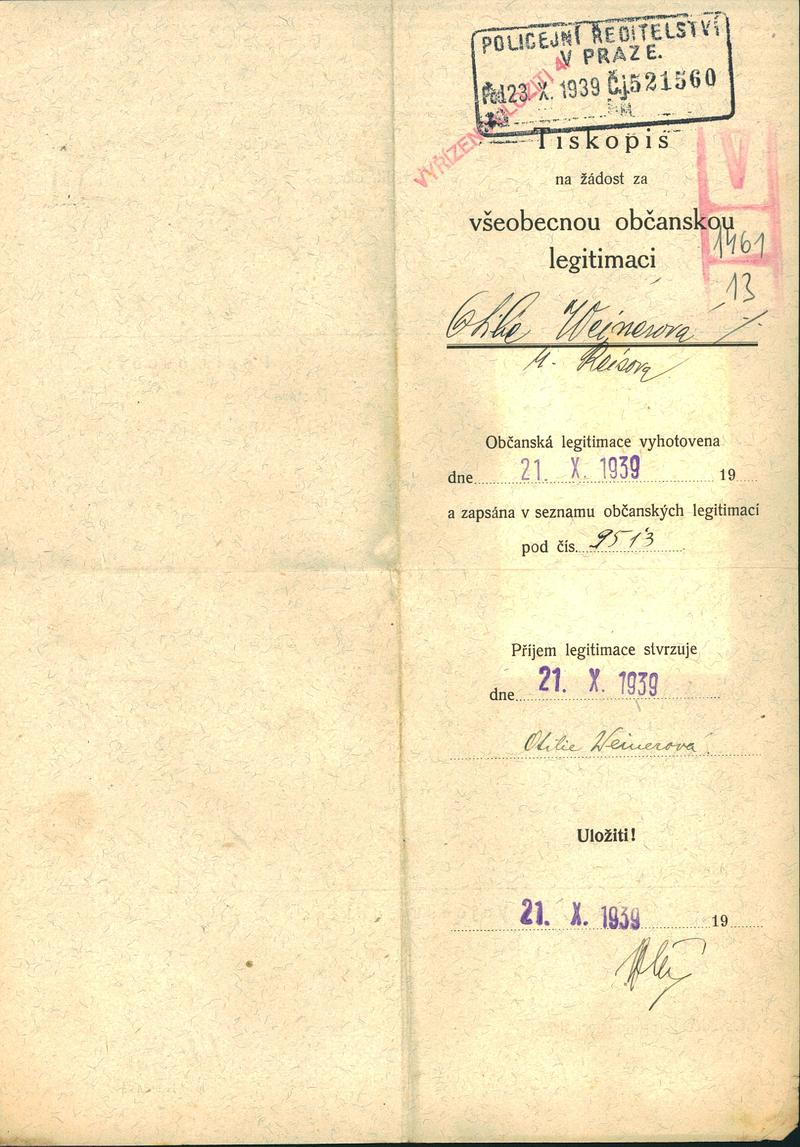 POLICEJNÍ ŘEDITELSTVÍ
V PRAZE.
Pod. 23. X. 1939 Čj. 521560
VYŘÍZENO ULOŽITI
Tiskopis
na žádost za
všeobecnou občanskou
legitimaci
V
1461
13
Otilie Weinerová
r. Reisová
Občanská legitimace vyhotovena
dne 21. X. 1939 19
a zapsána v seznamu občanských legitimací
pod čís. 9513
Příjem legitimace stvrzuje
dne 21. X. 1939
Otilie Weinerová
Uložiti!
21. X. 1939 19